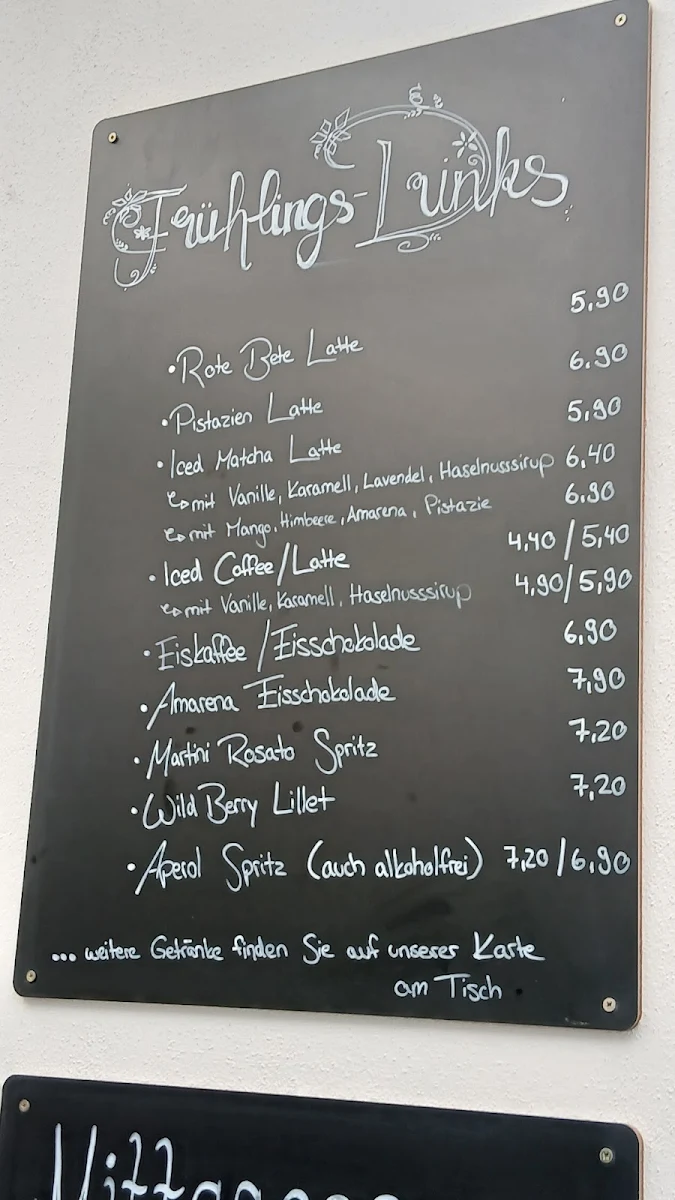 Frühlings-Drinks
• Rote Bete Latte 5,90
• Pistazien Latte 6.90
• Iced Matcha Latte 5,90
↳ mit Vanille, Karamell, Lavendel, Haselnusssirup 6,40
↳ mit Mango, Himbeere, Amarena, Pistazie 6.90
• Iced Coffee/Latte 4,40/5,40
↳ mit Vanille, Karamell, Haselnusssirup 4,90/5,90
• Eiskaffee/Eisschokolade 6,90
• Amarena Eisschokolade 7,90
• Martini Rosato Spritz 7,20
• Wild Berry Lillet 7,20
• Aperol Spritz (auch alkoholfrei) 7,20/6,90
... weitere Getränke finden Sie auf unserer Karte
am Tisch